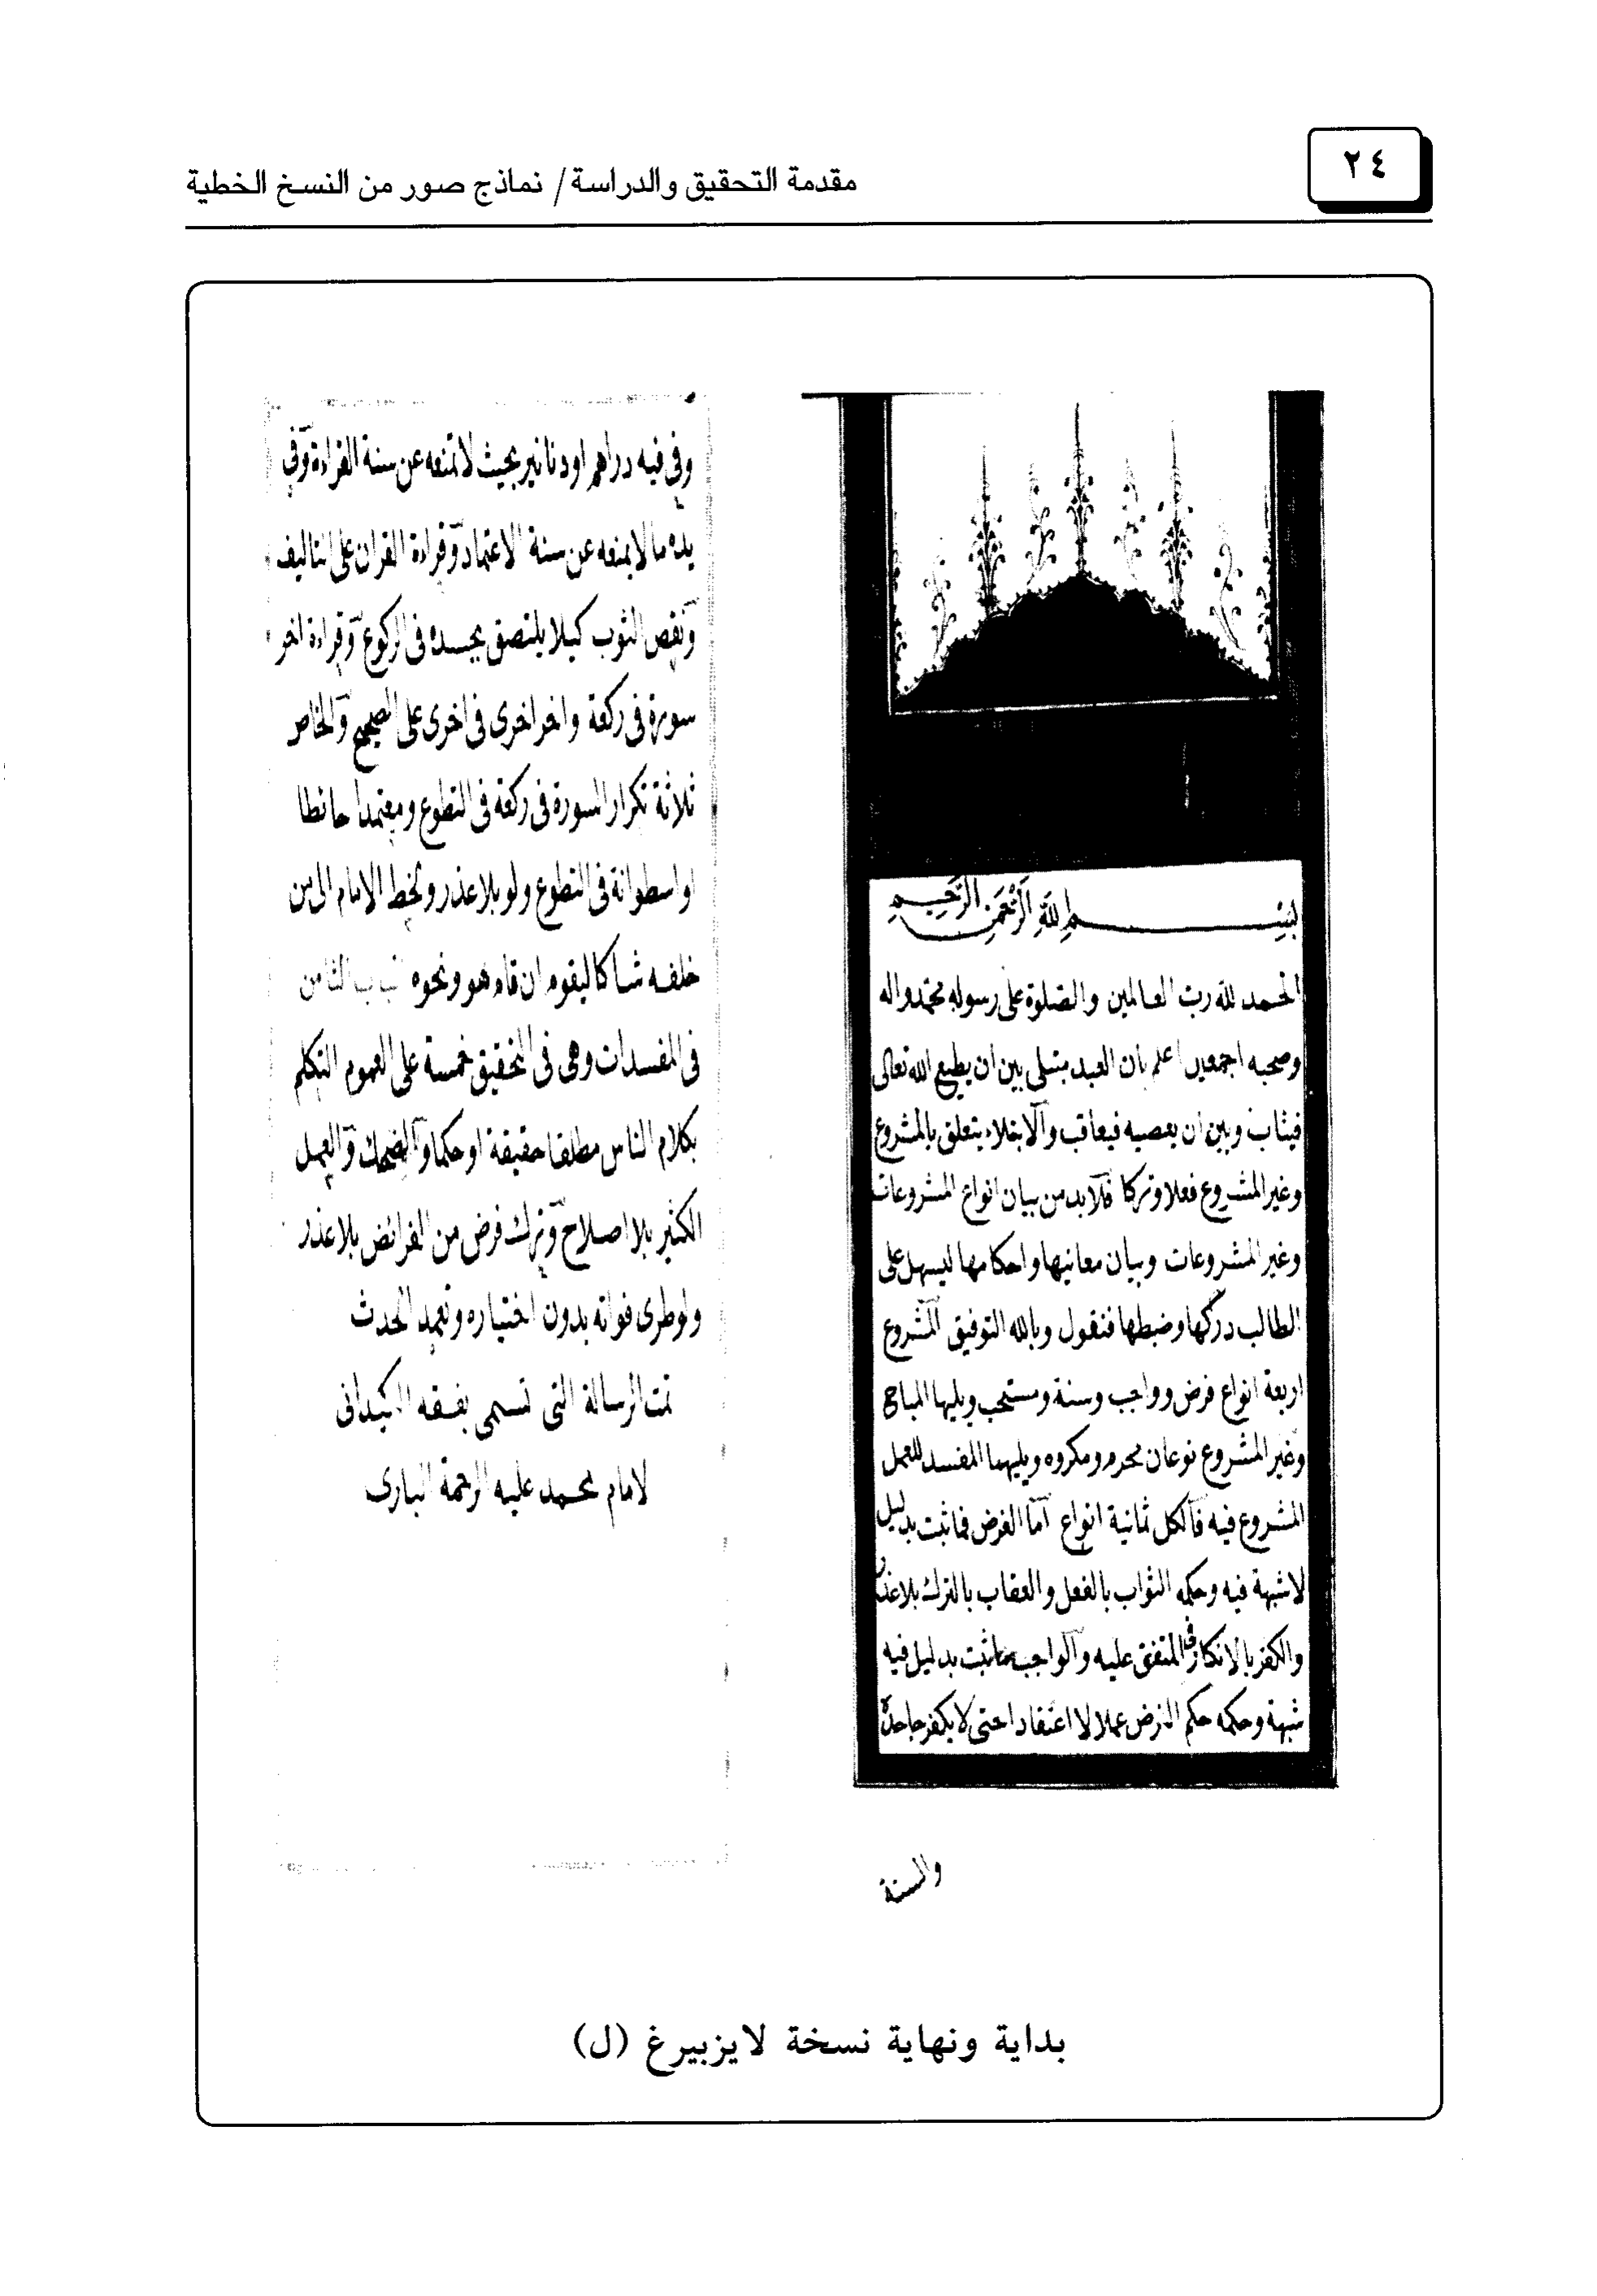 ٢٤
مقدمة التحقيق والدراسة / نماذج صور من النسخ الخطية
بسم الله الرحمن الرحيم
الحمد لله رب العالمين والصلوة على رسوله محمد واله
وصحبه اجمعين اعلم بان العبد مبتلى بين ان يطيع الله تعالى
فيثاب وبين ان يعصيه فيعاقب والابتلاء يتعلق بالمشروع
وغير المشروع فعلا وتركا فلابد من بيان انواع المشروعات
وغير المشروعات وبيان معانيها واحكامها ليسهل على
الطالب دركها وضبطها فنقول وبالله التوفيق المشروع
اربعة انواع فرض وواجب وسنة ومستحب ويليها المباح
وغير المشروع نوعان محرم ومكروه ويليهما المفسد للعمل
المشروع فيه فالكل ثمانية انواع اما الفرض فما ثبت بدليل
لاشبهة فيه وحكمه الثواب بالفعل والعقاب بالترك بلاعذر
والكفر بالانكار فى المتفق عليه والواجب ماثبت بدليل فيه
شبهة وحكمه حكم الفرض عملا لا اعتقادا حتى لا يكفر جاحده
والسنة
وفى فيه دراهم اودنانير بحيث لاتمنعه عن سنة القراءة وفى
يده ما لايمنعه عن سنة الاعتماد وقراءة القران على التاليف
ونفض الثوب كيلا يلتصق بجسده فى الركوع وقراءة اخر
سورة فى ركعة واخر اخرى فى اخرى على الصحيح والخاص
ثلاثة تكرار السورة فى ركعة فى التطوع ومعتمدا حائطا
او اسطوانة فى التطوع ولو بلاعذر ولحظ الامام الى من
خلفه شاكا ليقوم ان قام هو ونحوه الباب الثامن
فى المفسدات وهى فى التحقيق خمسة على العموم التكلم
بكلام الناس مطلقا حقيقة او حكما والضحك والعمل
الكثير بلا اصلاح وترك فرض من الفرائض بلاعذر
ولوطرى فواته بدون اختياره وتعمد الحدث
تمت الرسالة التى تسمى بفقه الكيدانى
لامام محمد عليه الرحمة البارى
بداية ونهاية نسخة لايزبيرغ (ل)